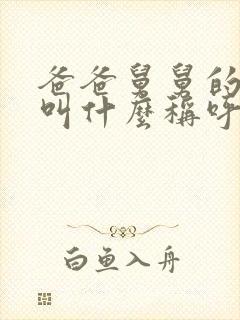 爸爸舅舅的
叫什麼稱呼
白鱼入舟